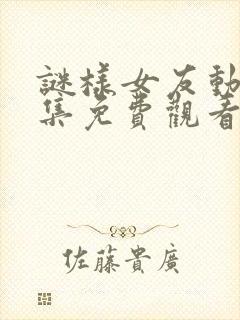 謎樣女友動
集免費觀看
佐藤貴廣